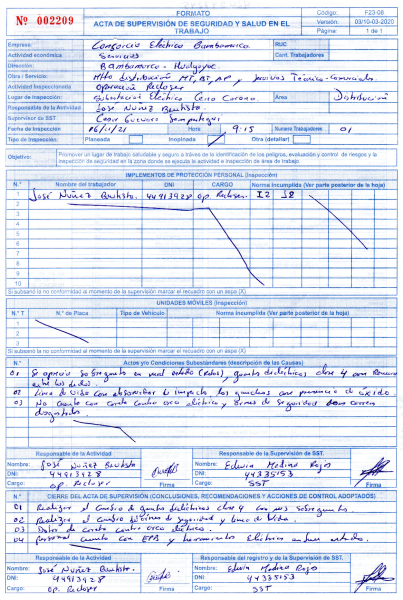 Nº 002209
FORMATO
ACTA DE SUPERVISIÓN DE SEGURIDAD Y SALUD EN EL TRABAJO
Código: F23-08
Versión: 03/10-03-2020
Página: 1 de 1
Empresa: Consorcio Eléctrico Bambamarca RUC
Actividad económica Servicios Cant. Trabajadores
Dirección: Bambamarca - Hualgayoc
Obra / Servicio: Mtto distribución MT, BT, AP y Técnico-Comerciales
Actividad Inspeccionada Operación Recloser
Lugar de Inspección: Subestación Eléctrica Cerro Corona Área Distribución
Responsable de la Actividad José Núñez Bautista
Supervisor de SST
Fecha de Inspección 16/11/21 Hora 9:15 Numero Trabajadores 01
Tipo de Inspección: Planeada Inopinada Otra (detallar)
Objetivo: Promover un lugar de trabajo saludable y seguro a través de la identificación de los peligros, evaluación y control de riesgos y la inspección de seguridad en la zona donde se ejecuta la actividad e inspección de área de trabajo.
IMPLEMENTOS DE PROTECCIÓN PERSONAL (Inspección)
N.° Nombre del trabajador DNI CARGO Norma Incumplida (Ver parte posterior de la hoja)
1 José Núñez Bautista. 44913928 Op. Recloser. I2 I8
2
3
4
5
6
7
8
9
10
Si subsanó la no conformidad al momento de la supervisión marcar el recuadro con un aspa (X)
UNIDADES MÓVILES (Inspección)
N.° T N.° de Placa Tipo de Vehículo Norma incumplida (Ver parte posterior de la hoja)
1
2
3
Si subsanó la no conformidad al momento de la supervisión marcar el recuadro con un aspa (X)
N.° Actos y/o Condiciones Subestándares (descripción de las Causas)
01 Se aprecia sobreguante en mal estado (rotos), guantes dieléctricos clase 4 con
entre los dedos.
02 Línea de vida con absorbedor de impacto los ganchos con presencia de óxido
03 No cuenta con careta contra arco eléctrico y arnés de seguridad con correa
desgastada.
Responsable de la Actividad Responsable de la Supervisión de SST.
Nombre: José Núñez Bautista Nombre: Edwin Medina Rojas
DNI: 44913928 DNI: 44335153
Cargo: Op. Recloser Firma Cargo: SST Firma
N.° CIERRE DEL ACTA DE SUPERVISIÓN (CONCLUSIONES, RECOMENDACIONES Y ACCIONES DE CONTROL ADOPTADOS)
01 Realizar el cambio de guantes dieléctricos clase 4 con sus sobreguante.
02 Realizar el cambio de seguridad y línea de vida.
03 Dotar de careta contra arco eléctrico.
04 Personal cuenta con EPP y herramientas eléctricas en buen estado.
Responsable de la Actividad Responsable del registro y de la Supervisión de SST.
Nombre: José Núñez Bautista. Nombre: Edwin Medina Rojas
DNI: 44913928 DNI: 44335153
Cargo: Op. Recloser Firma Cargo: SST Firma